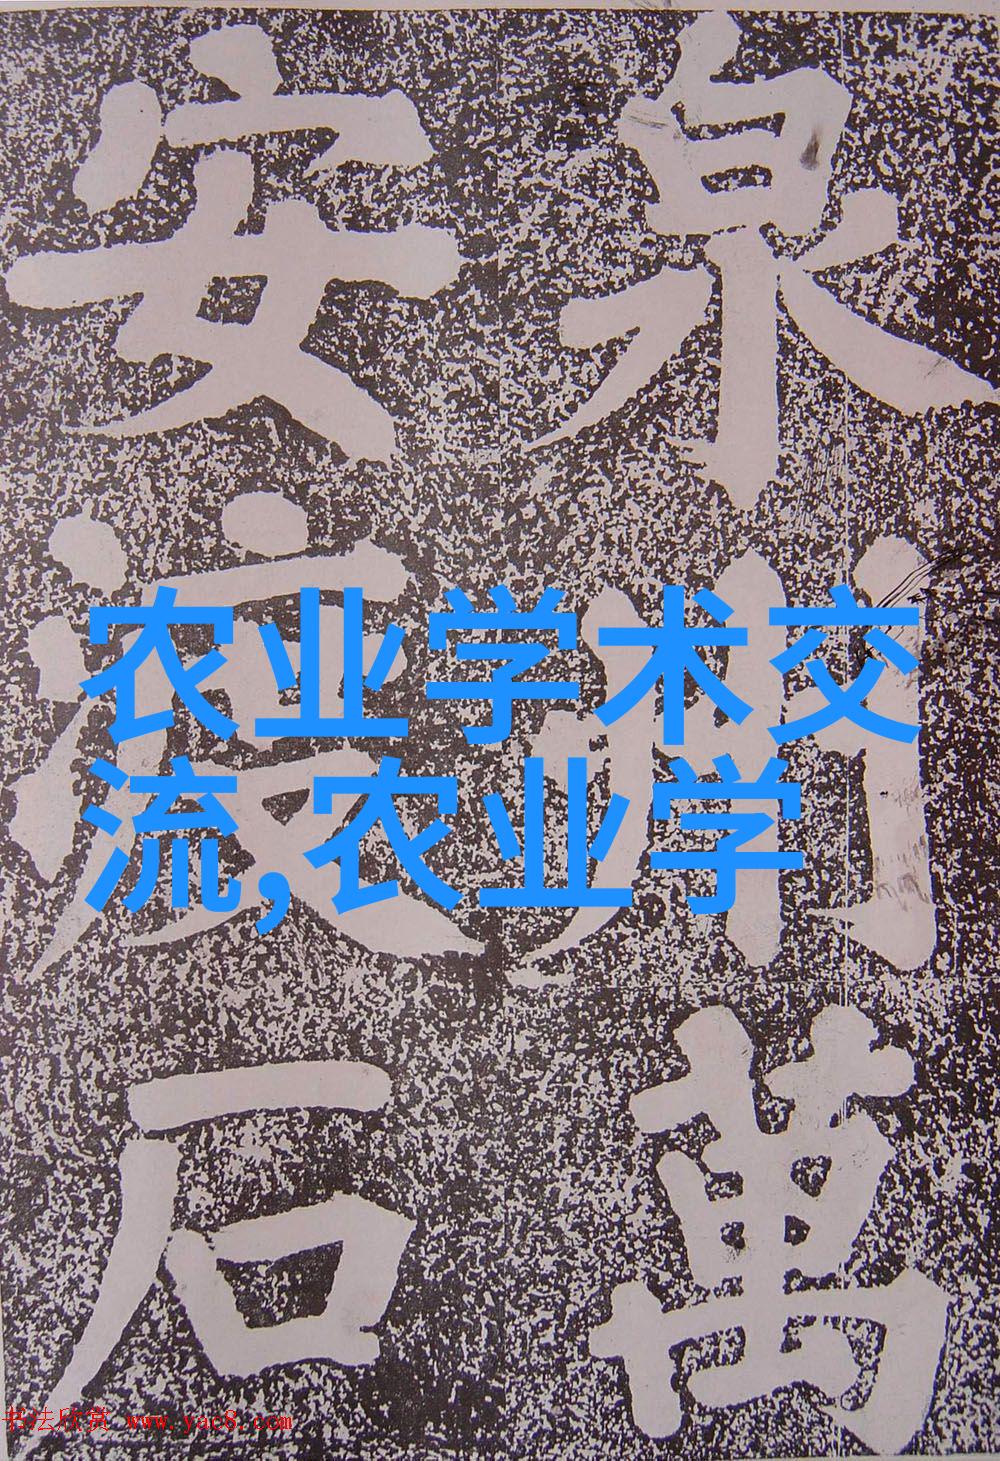 泉州萬
安渡石
农业学术交
流,农业学
书法欣赏 www.yac8.com